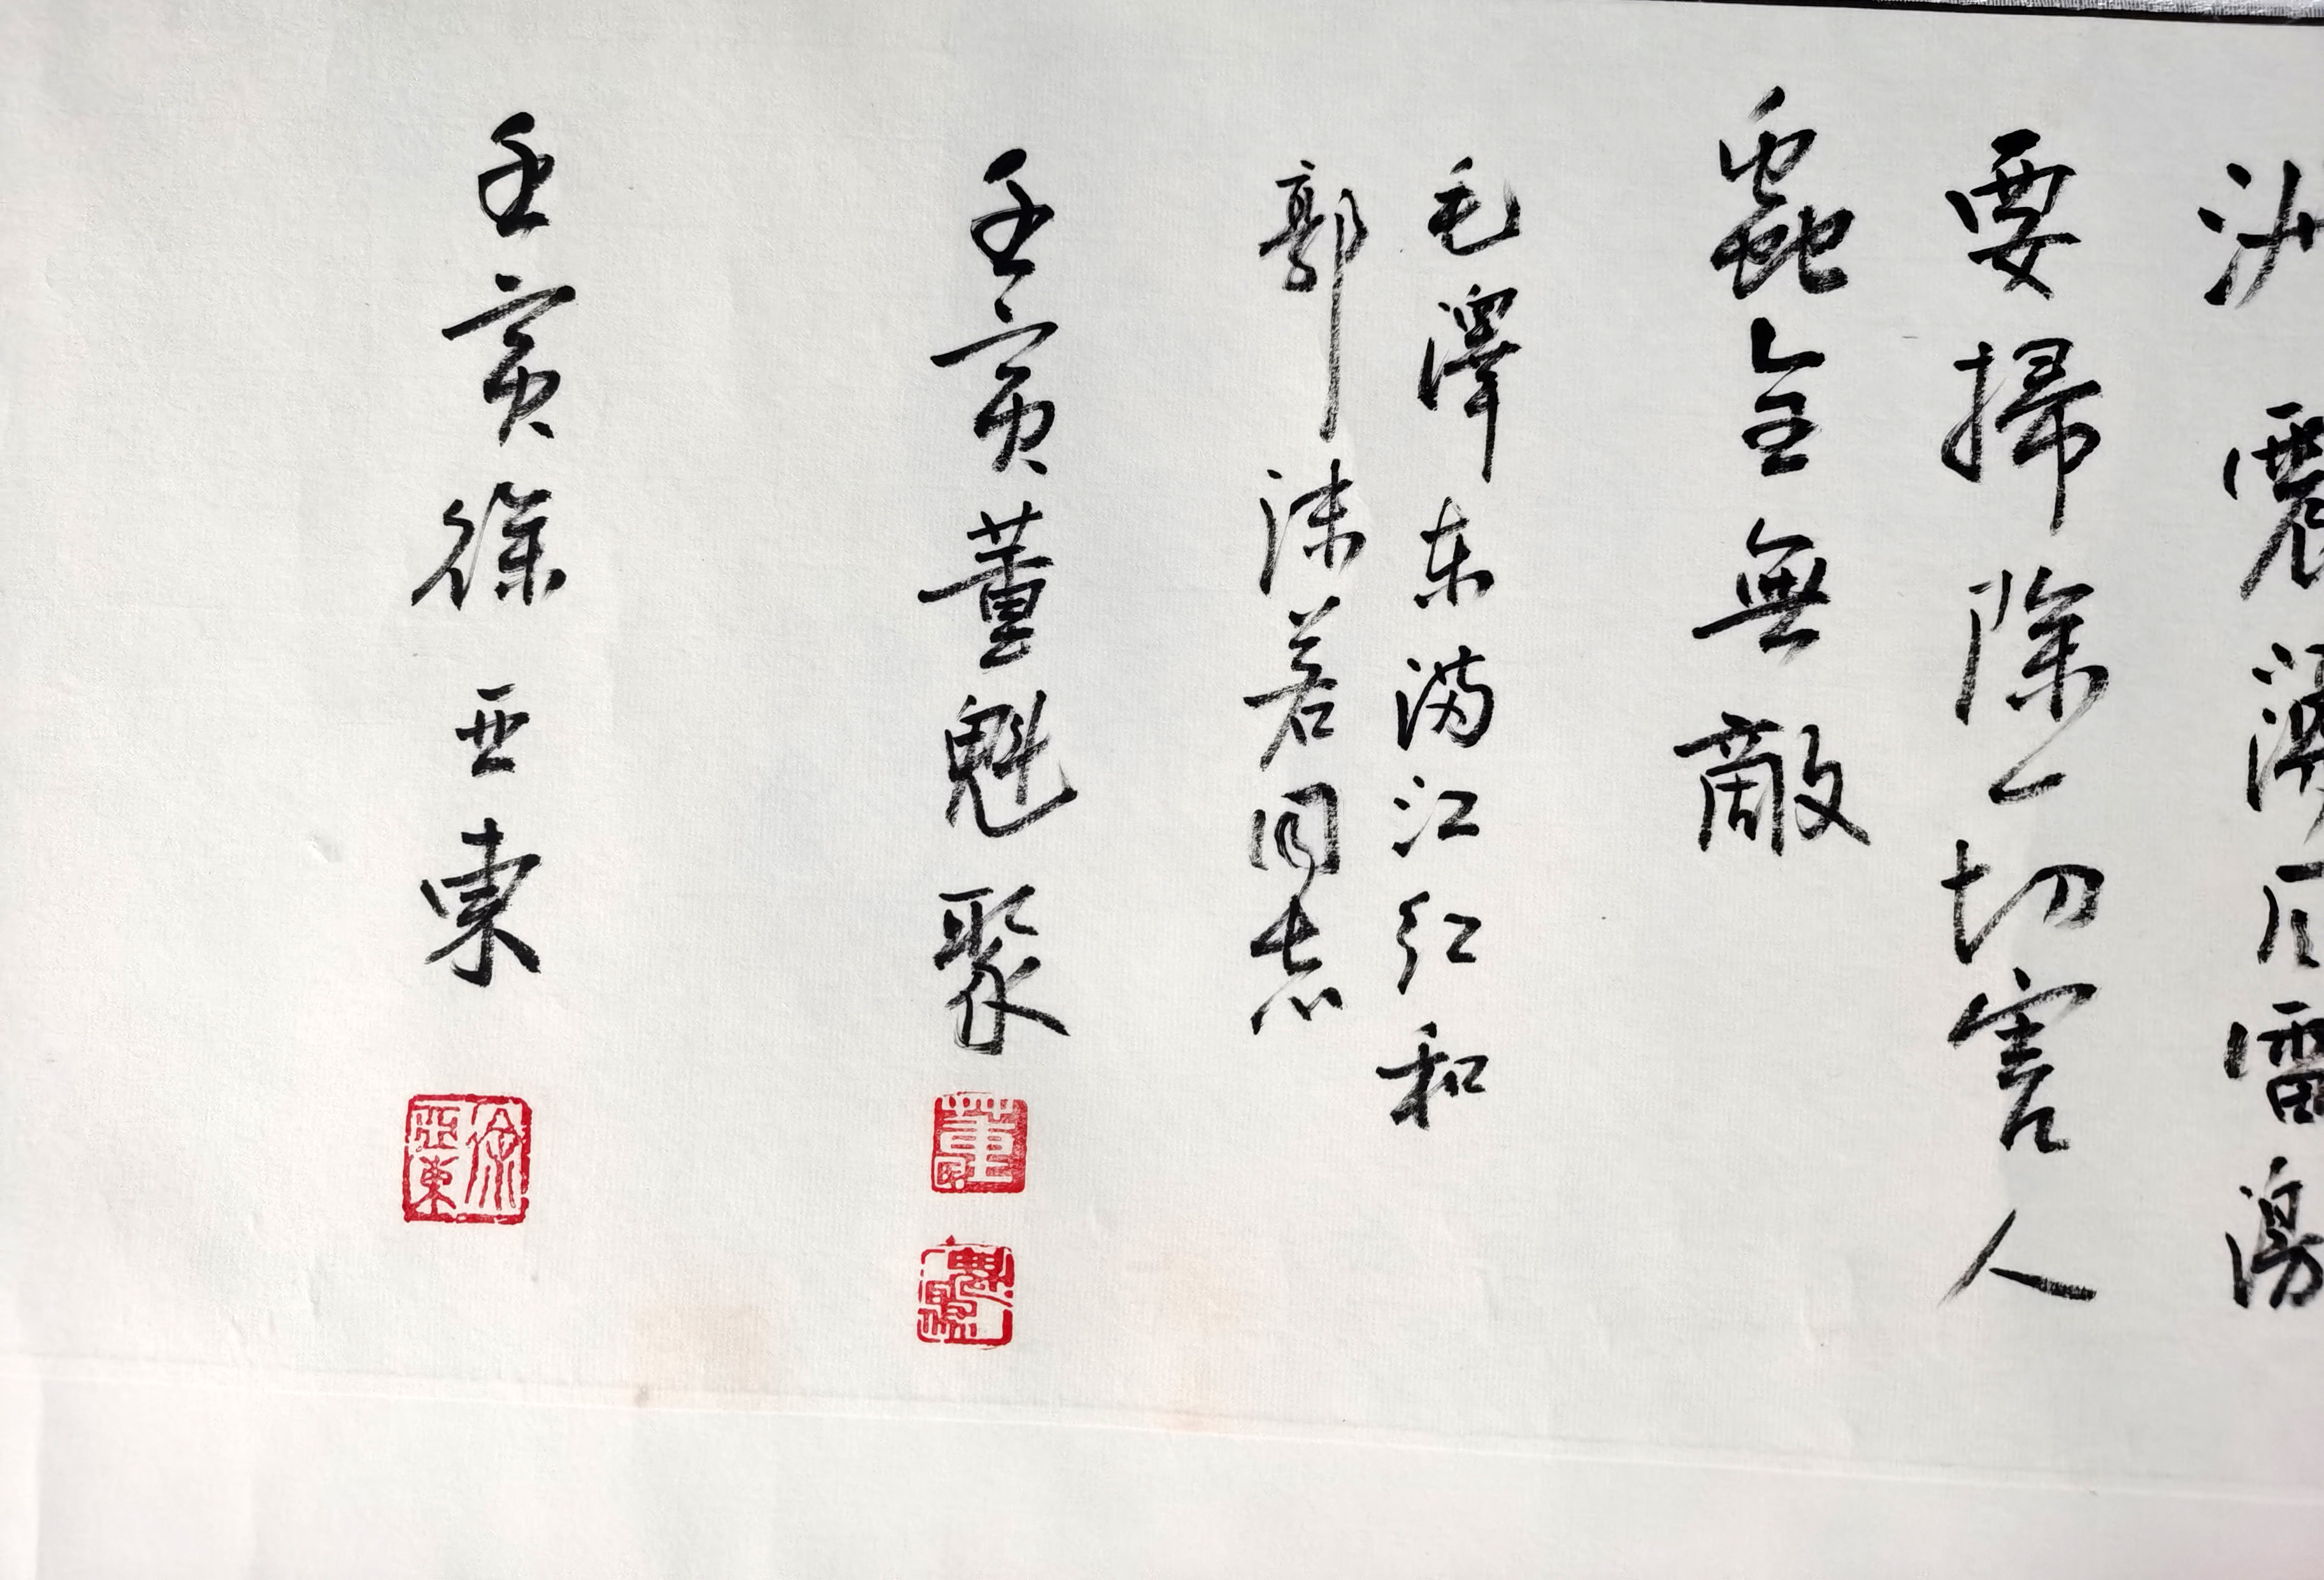 洲震蕩風雷激
要掃除一切害人
蟲全無敵
毛澤东满江红和
郭沫若同志
壬寅董魁聚
董
魁聚
壬寅徐亚東
徐亞東